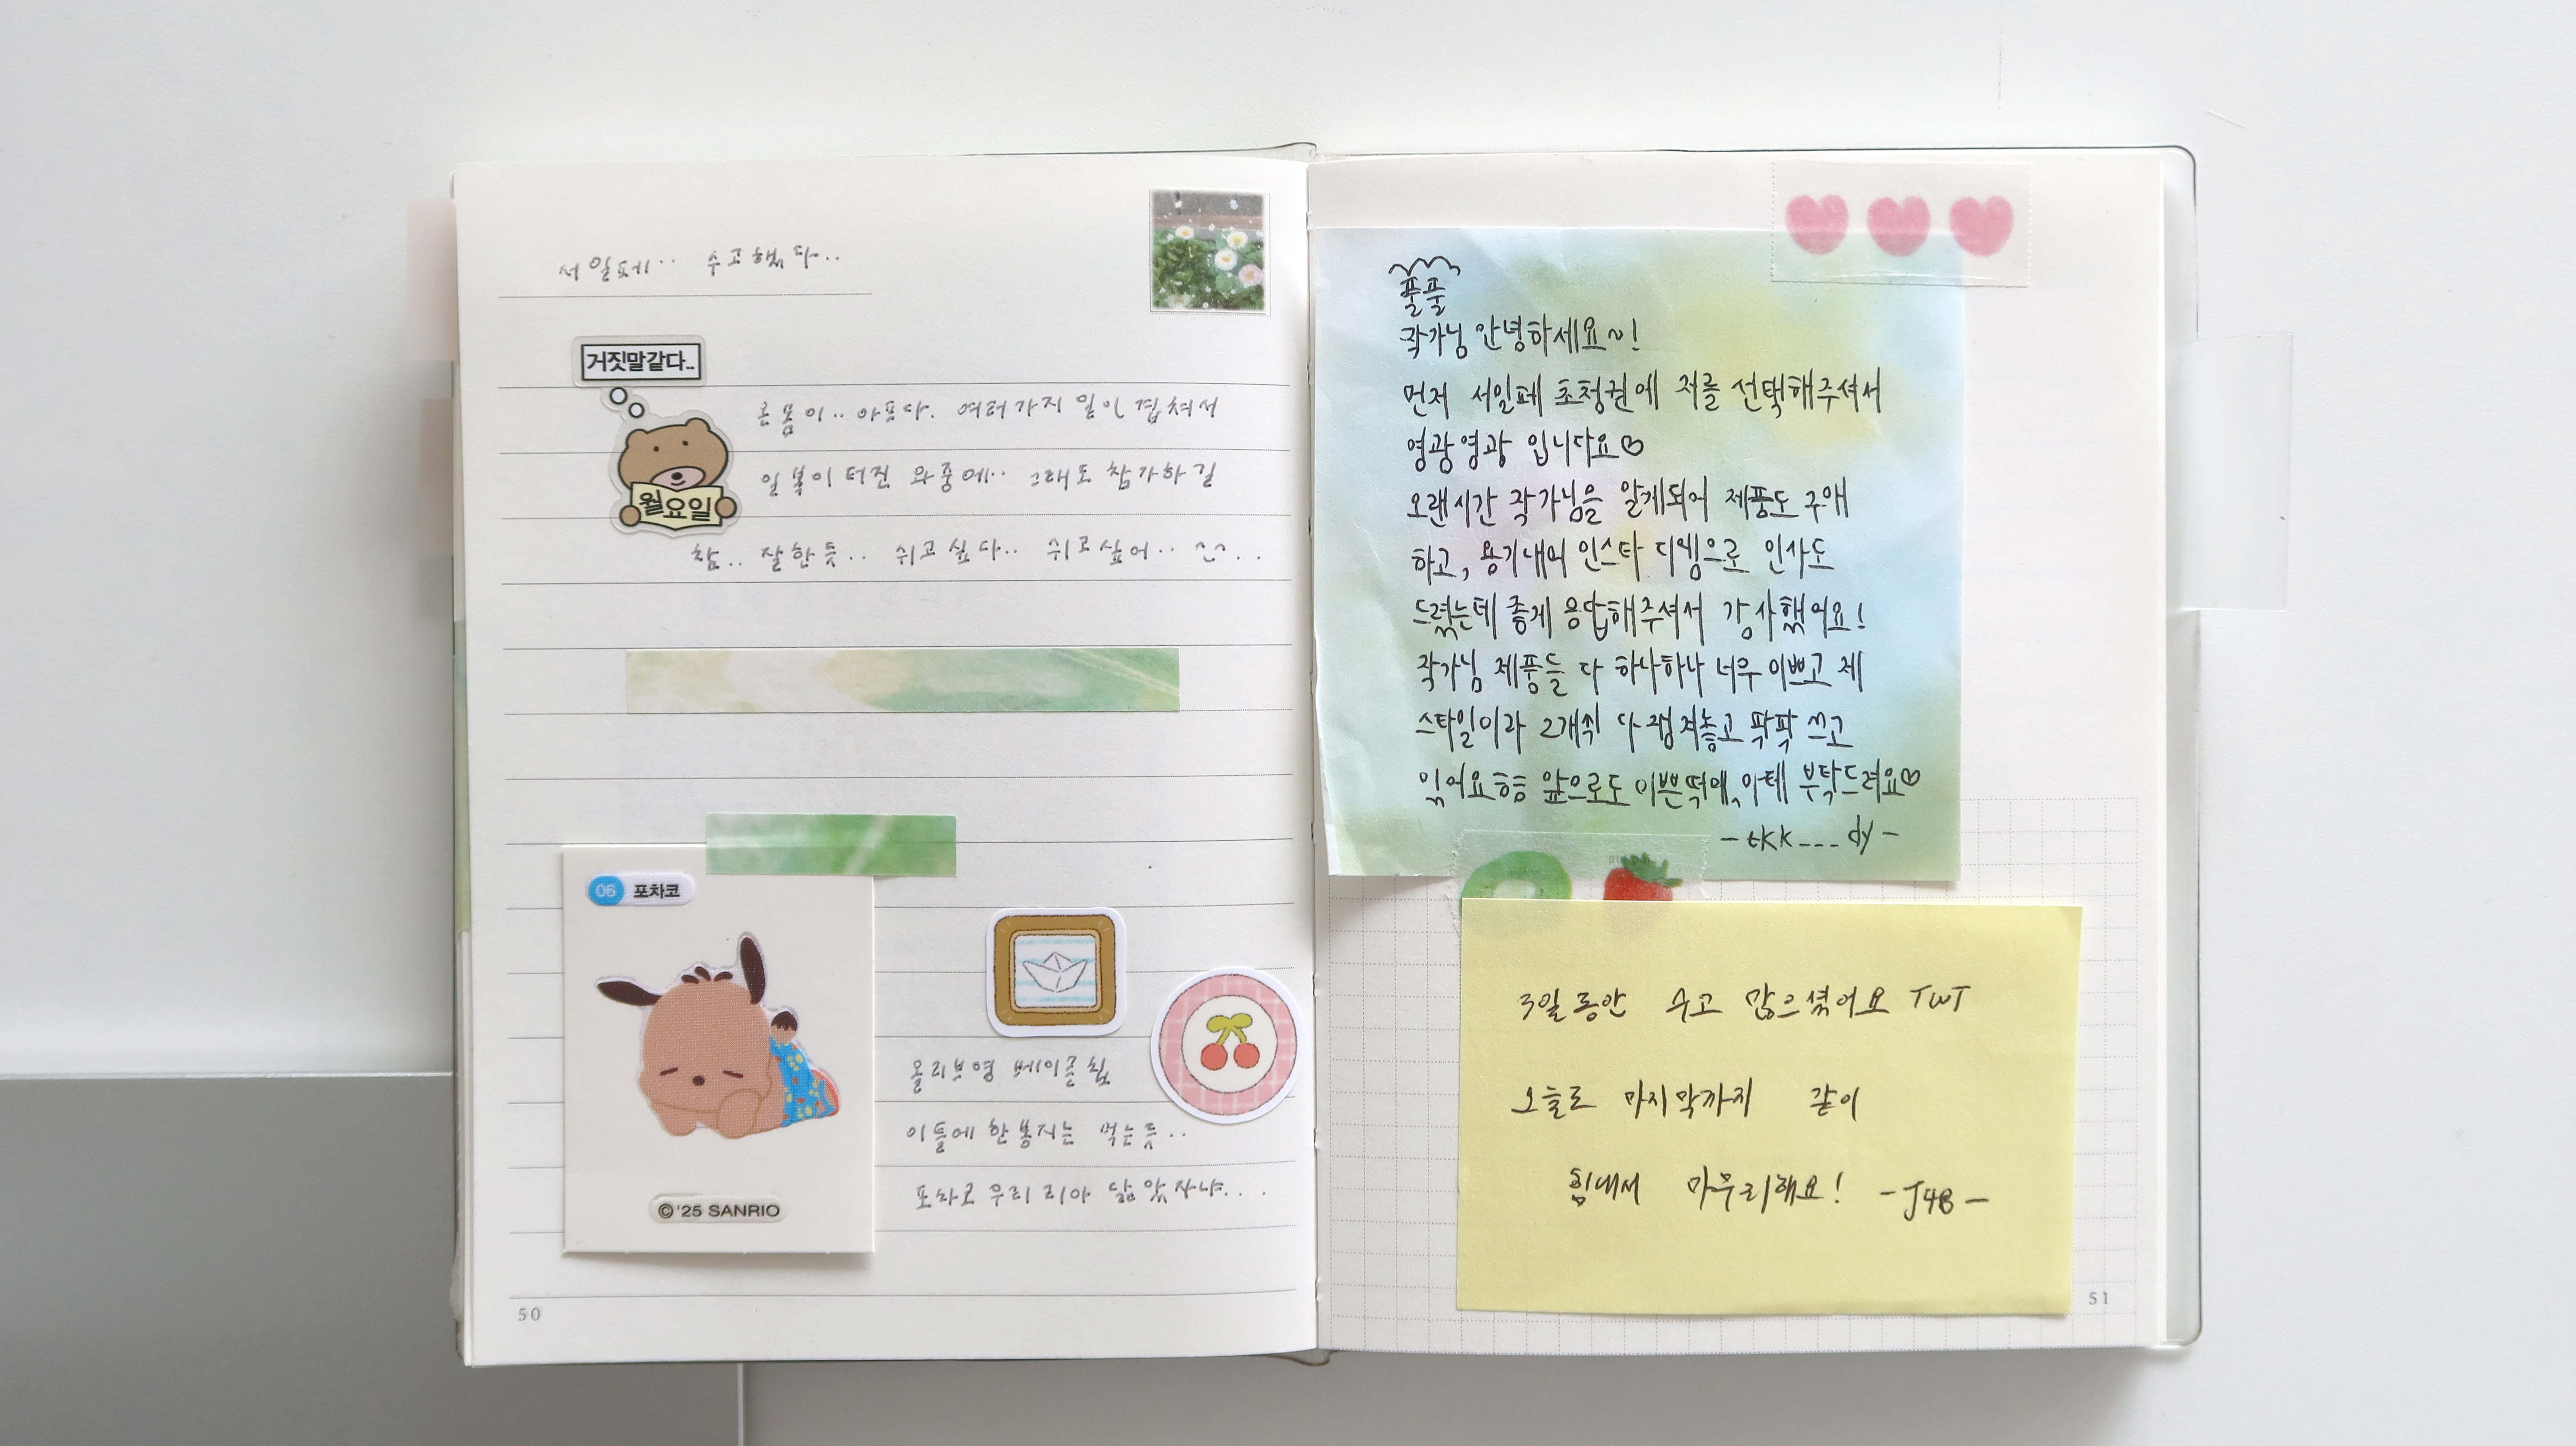 서일페.. 수고했다..
거짓말같다..
월요일
온몸이.. 아프다. 여러가지 일이 겹쳐서
일복이 터진 와중에.. 그래도 참가하길
참.. 잘한듯.. 쉬고싶다.. 쉬고싶어..
06 포차코
©'25 SANRIO
올리브영 베이글칩
이틀에 한봉지는 먹는듯..
포차코 우리 리아 닮았자냐...
50
풀풀
작가님 안녕하세요~!
먼저 서일페 초청권에 저를 선택해주셔서
영광영광 입니다요♡
오랜시간 작가님을 알게되어 제품도 구매
하고, 용기내어 인스타 디엠으로 인사도
드렸는데 좋게 응답해주셔서 감사했어요!
작가님 제품들 다 하나하나 너무 이쁘고 제
스타일이라 2개씩 다 쟁겨놓고 팍팍 쓰고
있어요ㅎㅎ 앞으로도 이쁜떡메, 마테 부탁드려요♡
-tkk___dy-
3일동안 수고 많으셨어요 TWT
오늘로 마지막까지 같이
힘내서 마무리해요! -J4B-
51